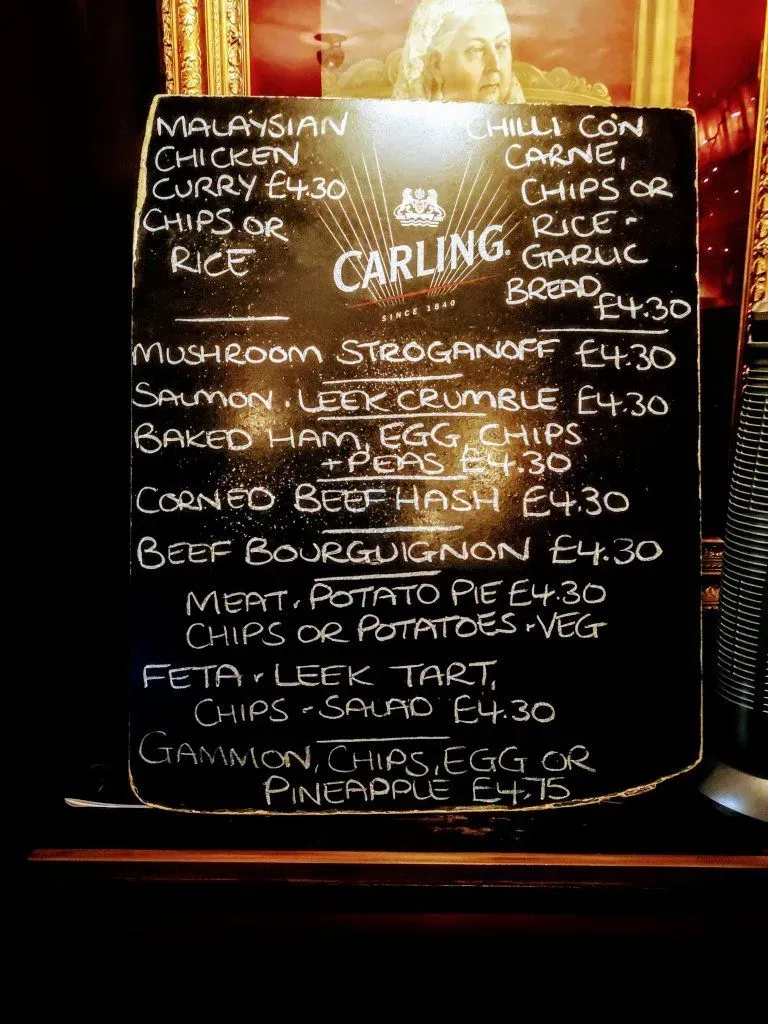 MALAYSIAN
CHICKEN
CURRY £4.30
CHIPS OR
RICE
CHILLI CON
CARNE,
CHIPS OR
RICE -
GARLIC
BREAD
£4.30
CARLING
SINCE 1840
MUSHROOM STROGANOFF £4.30
SALMON . LEEK CRUMBLE £4.30
BAKED HAM, EGG, CHIPS
+ PEAS £4.30
CORNED BEEF HASH £4.30
BEEF BOURGUIGNON £4.30
MEAT . POTATO PIE £4.30
CHIPS OR POTATOES - VEG
FETA - LEEK TART,
CHIPS - SALAD £4.30
GAMMON, CHIPS, EGG OR
PINEAPPLE £4.75